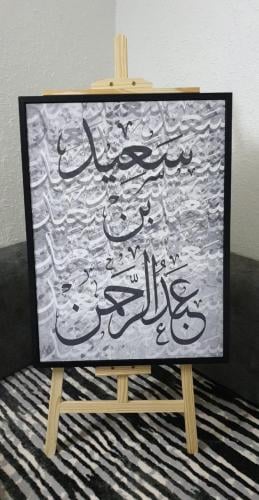 سَعِيد
بن
عَبدُالرَّحمن